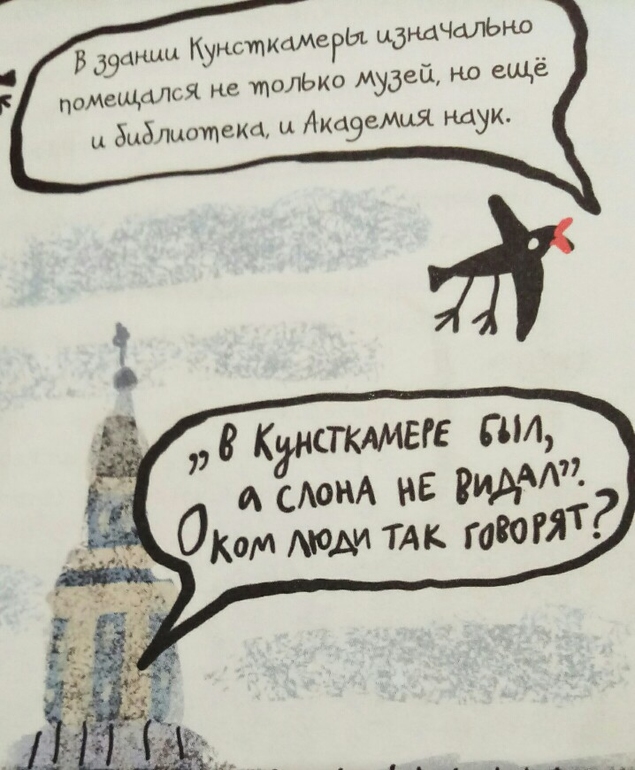 В здании Кунсткамеры изначально
помещался не только музей, но ещё
и библиотека, и Академия наук.
„В Кунсткамере был,
а слона не видал”.
О ком люди так говорят?